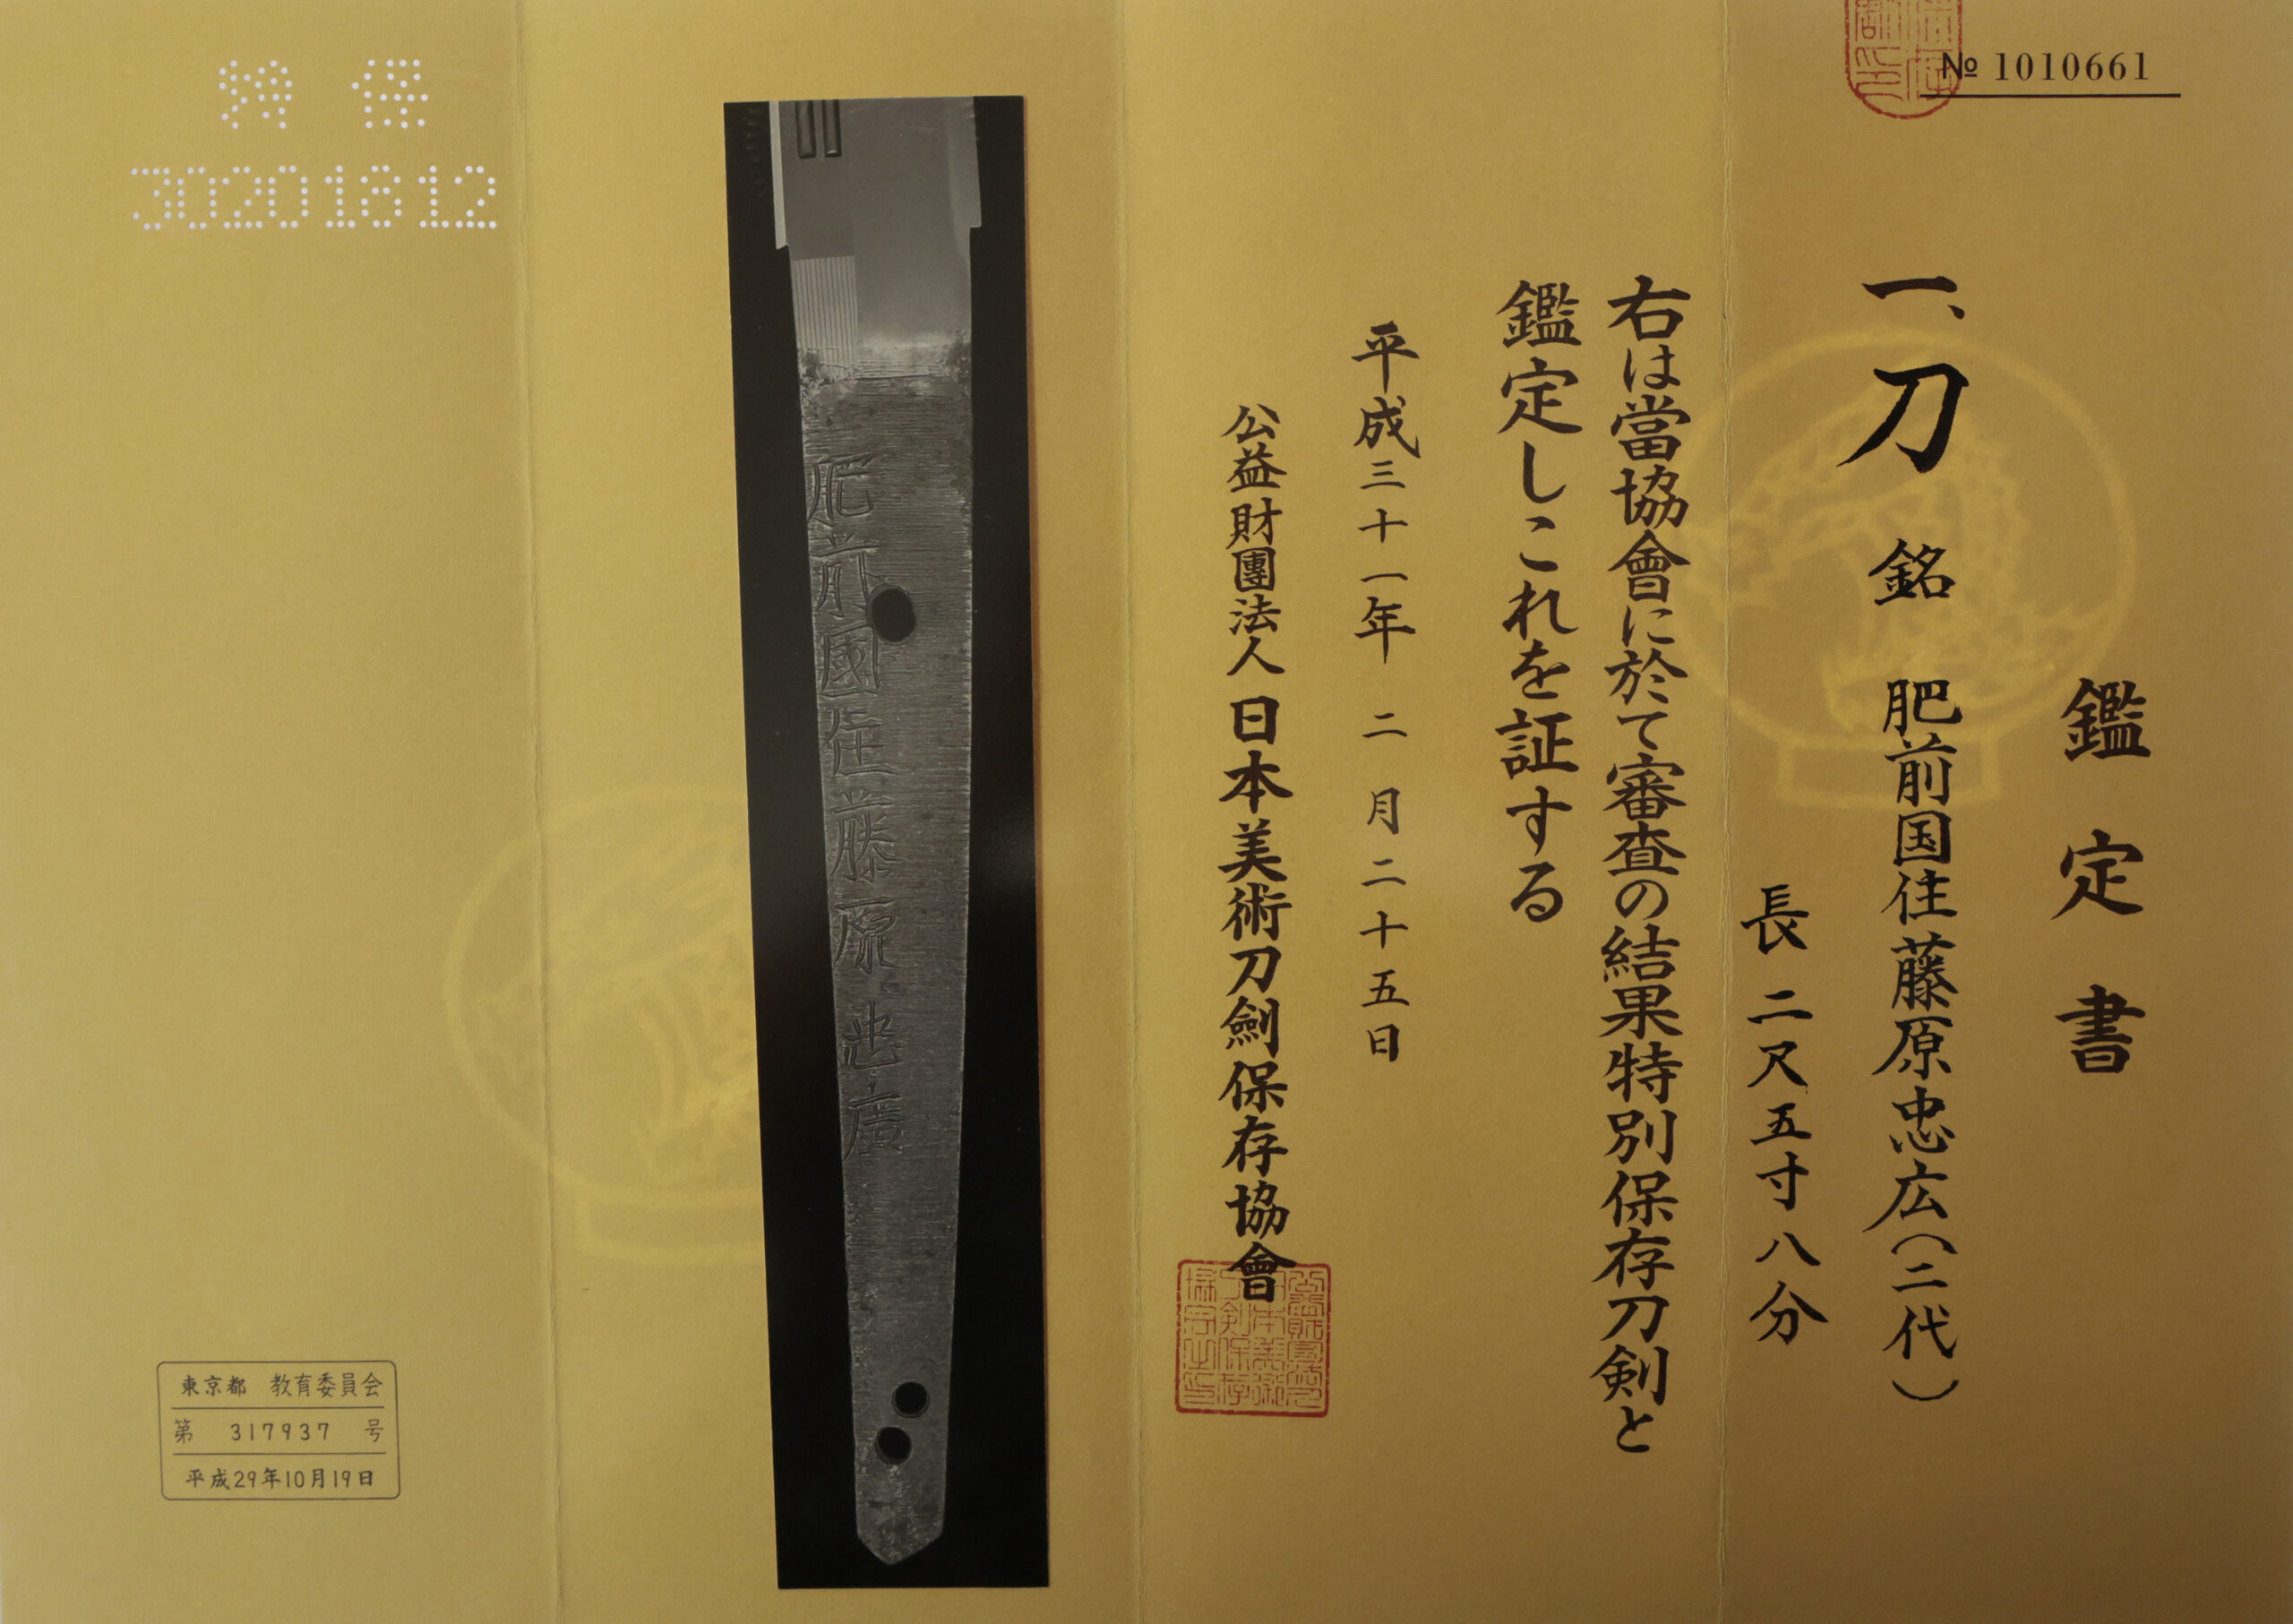 № 1010661
鑑定書
一、刀 銘 肥前国住藤原忠広(二代)
長二尺五寸八分
右は當協會に於て審査の結果特別保存刀剣と
鑑定しこれを証する
平成三十一年二月二十五日
公益財團法人日本美術刀劍保存協會
肥前國住藤原忠廣
特保
30201812
東京都 教育委員会
第 317937 号
平成29年10月19日